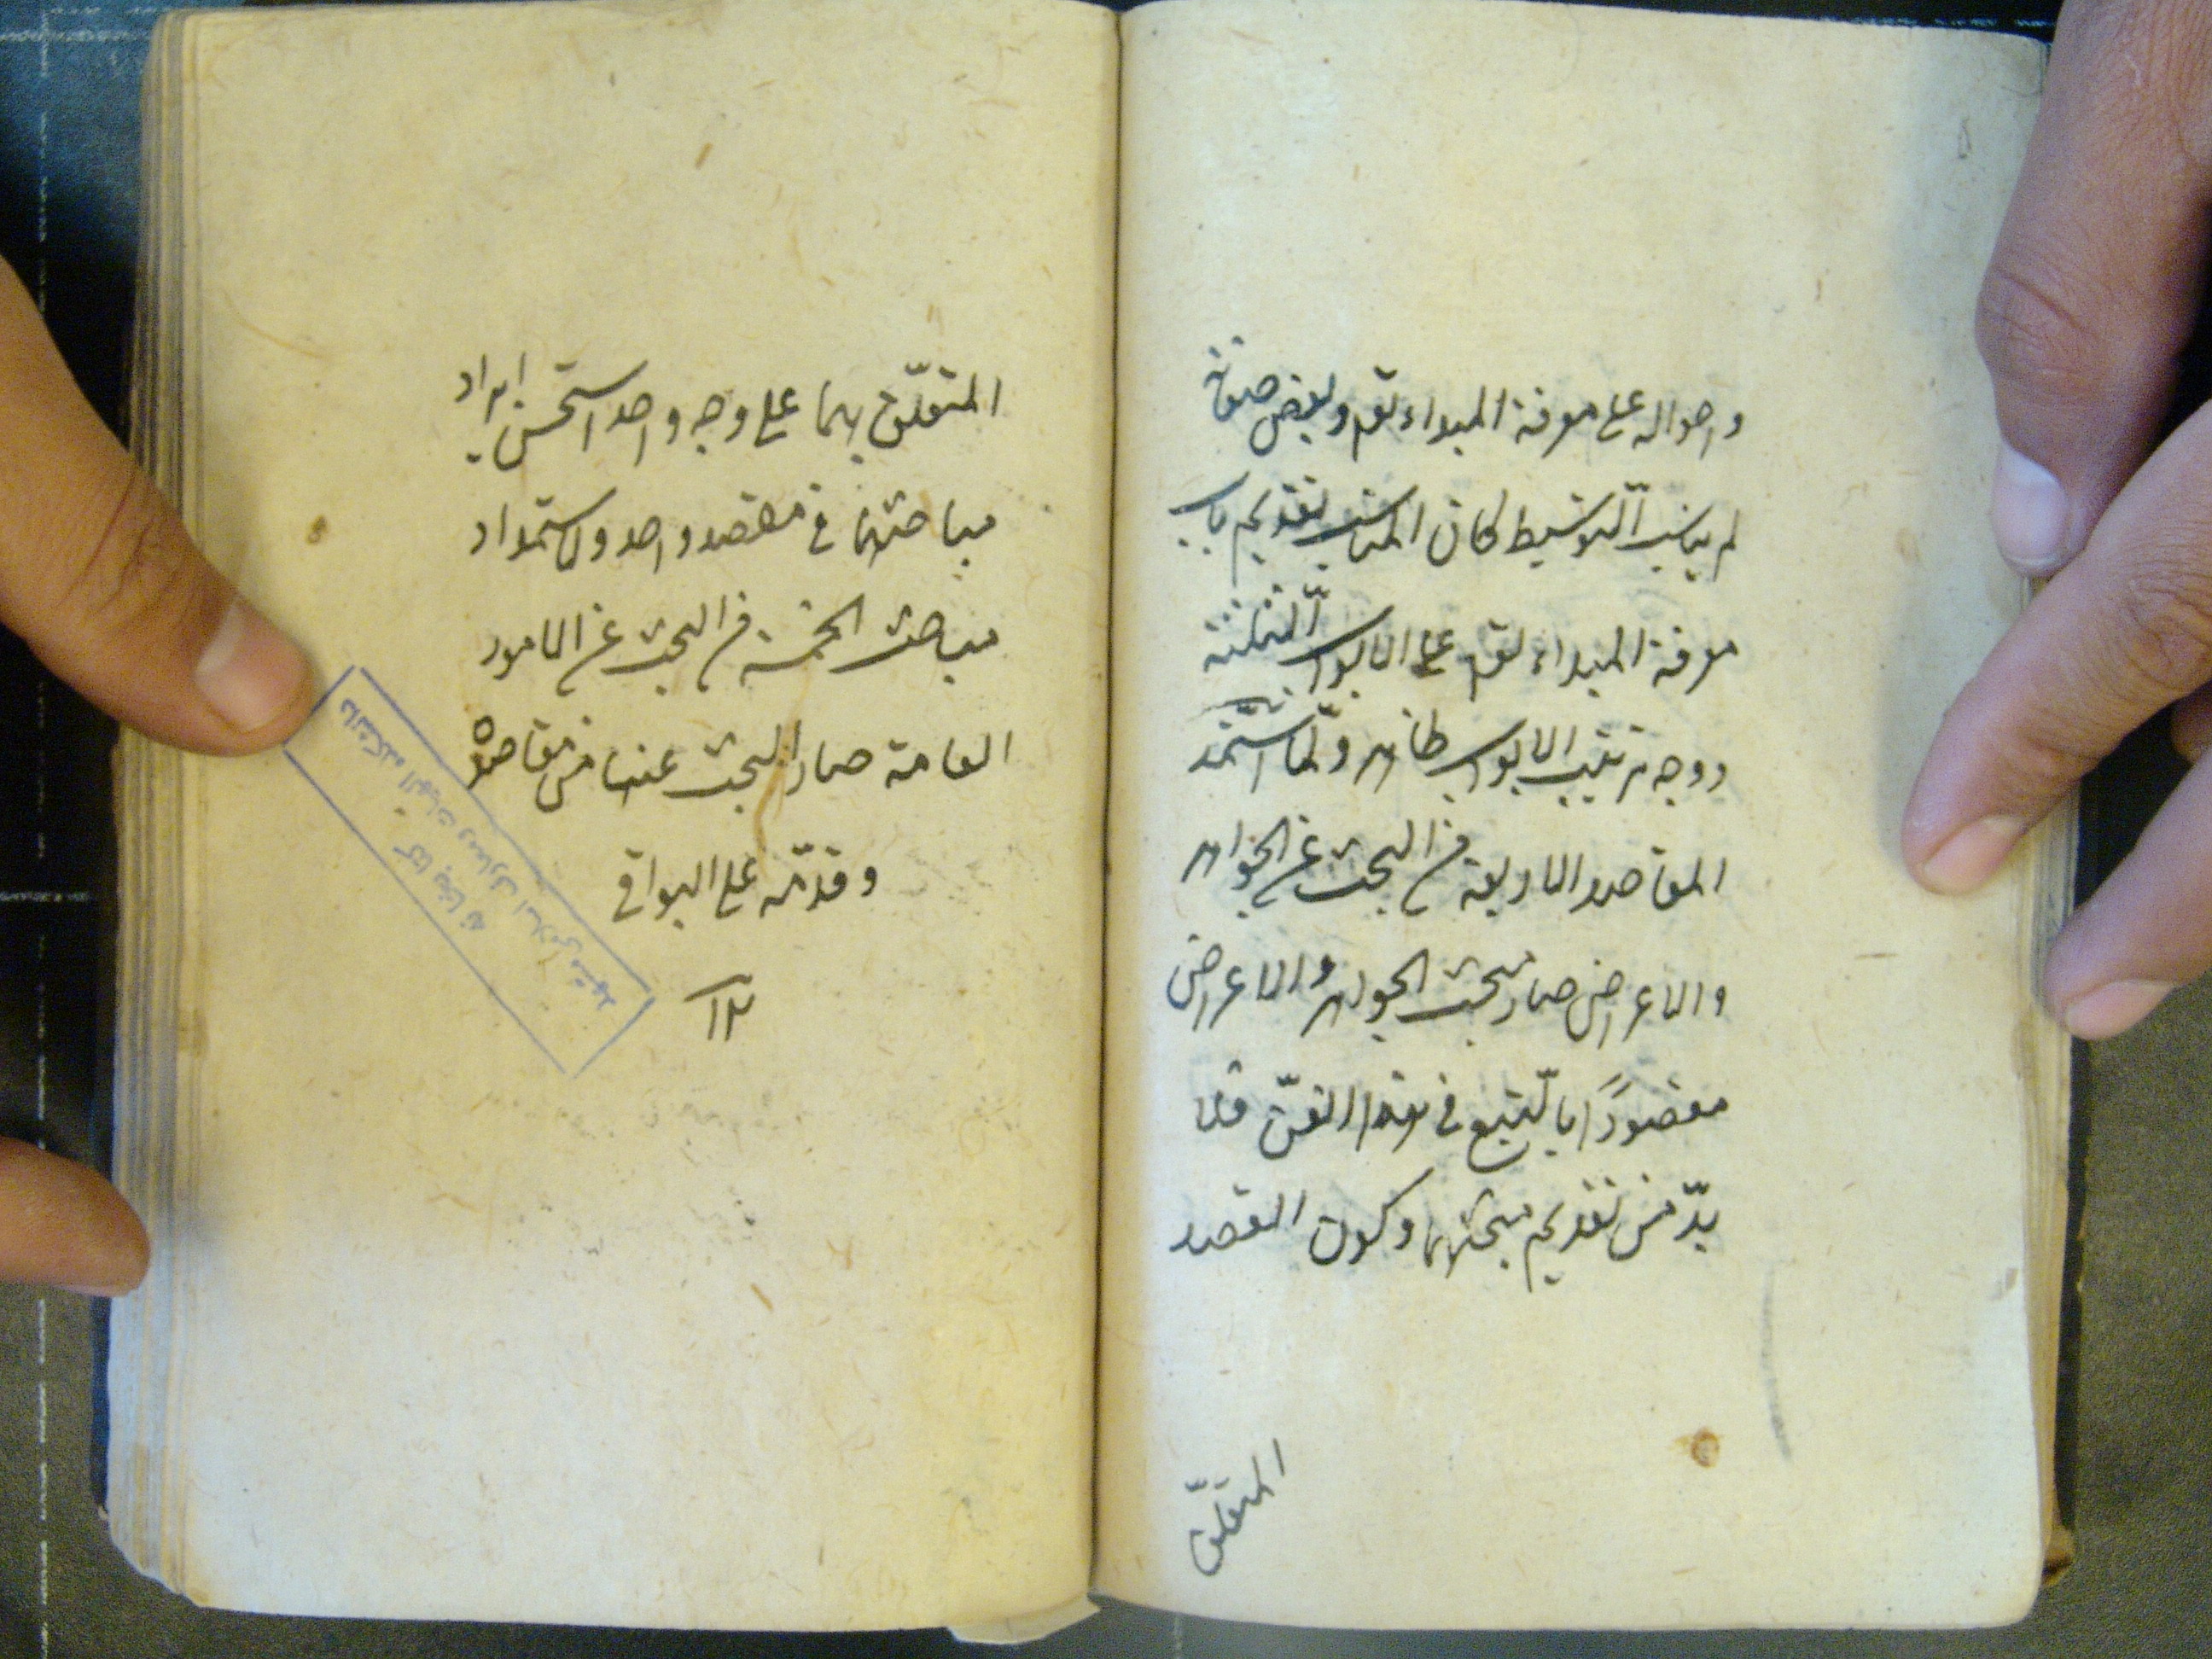 واحواله على معرفة المبداء تعم وبعض صفاته
لم يناسب التوسيط كان المناسب تقديم باب
معرفة المبداء تعم على الابواب الثلثة
ووجه ترتيب الابواب ظاهر ولمّا استمد
المقاصد الاربعة من البحث عن الجواهر
والاعراض صار مبحث الجواهر والاعراض
مقصودًا بالتّبع فى هذا الفنّ فلا
بدّ من تقديم مبحثهما وكون القصد
المتعلّق
المتعلّق بهما على وجه واحد استحسن ايراد
مباحثهما فى مقصد واحد ولاستمداد
مباحث الخمسة من البحث عن الامور
العامة صار البحث عنها من مقاصده
وقدّمه على البواقى
كتابخانه
دانشكده الهيات و معارف اسلامى مشهد